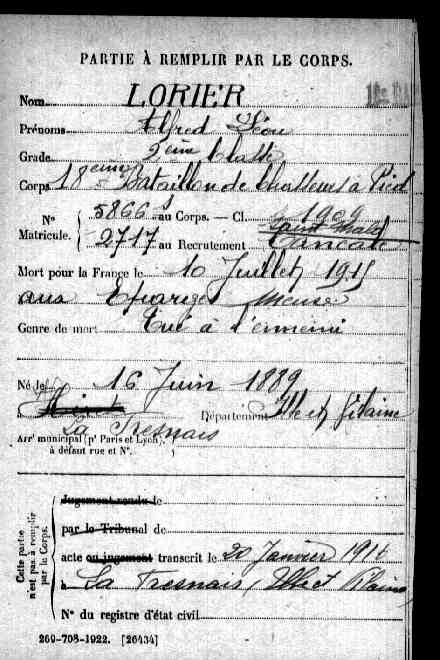 PARTIE À REMPLIR PAR LE CORPS.
Nom LORIER
Prénoms Alfred Léon
Grade 2ème Classe
Corps 18ème Bataillon de Chasseurs à Pied
N° Matricule. 5866 au Corps. — Cl. 1909
Saint Malo
2717 au Recrutement Cancale
Mort pour la France le 10 Juillet 1915
aux Eparges Meuse
Genre de mort Tué à l'ennemi
Né le 16 Juin 1889
Département Ille et Vilaine
La Fresnais
Arrt municipal (pr Paris et Lyon),
à défaut rue et N°.
Cette partie n'est pas à remplir par le Corps.
Jugement rendu le
par le Tribunal de
acte ou jugement transcrit le 20 Janvier 1916
à La Fresnais, Ille et Vilaine
N° du registre d'état civil
269-708-1922. [26434]